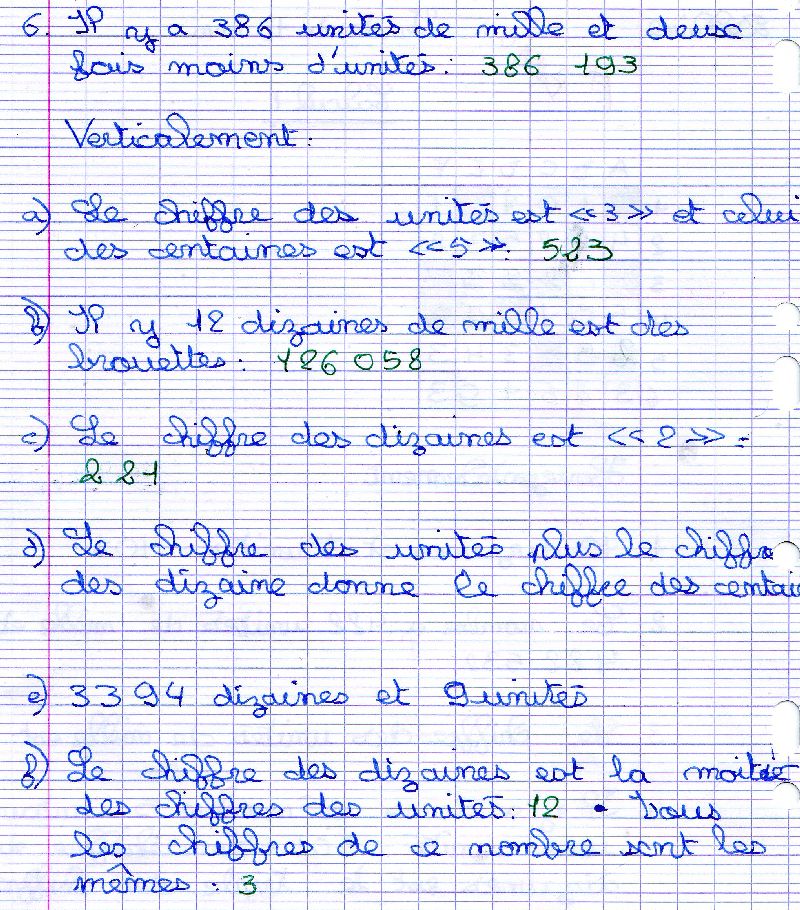 6. Il y a 386 unités de mille et deux
fois moins d'unités : 386 193
Verticalement :
a) Le chiffre des unités est «3» et celui
des centaines est «5» : 523
b) Il y 12 dizaines de mille est des
brouettes : 126 058
c) Le chiffre des dizaines est «2» :
221
d) Le chiffre des unités plus le chiffre
des dizaine donne le chiffre des centai
e) 3394 dizaines et 9 unités
f) Le chiffre des dizaines est la moitié
des chiffres des unités : 12 • tous
les chiffres de ce nombre sont les
mêmes : 3